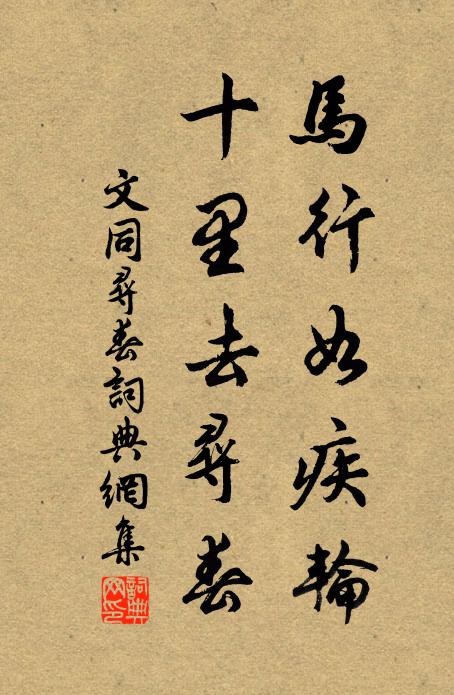 馬行如疾輪
十里去尋春
文同尋春詞典網集
詞典網印